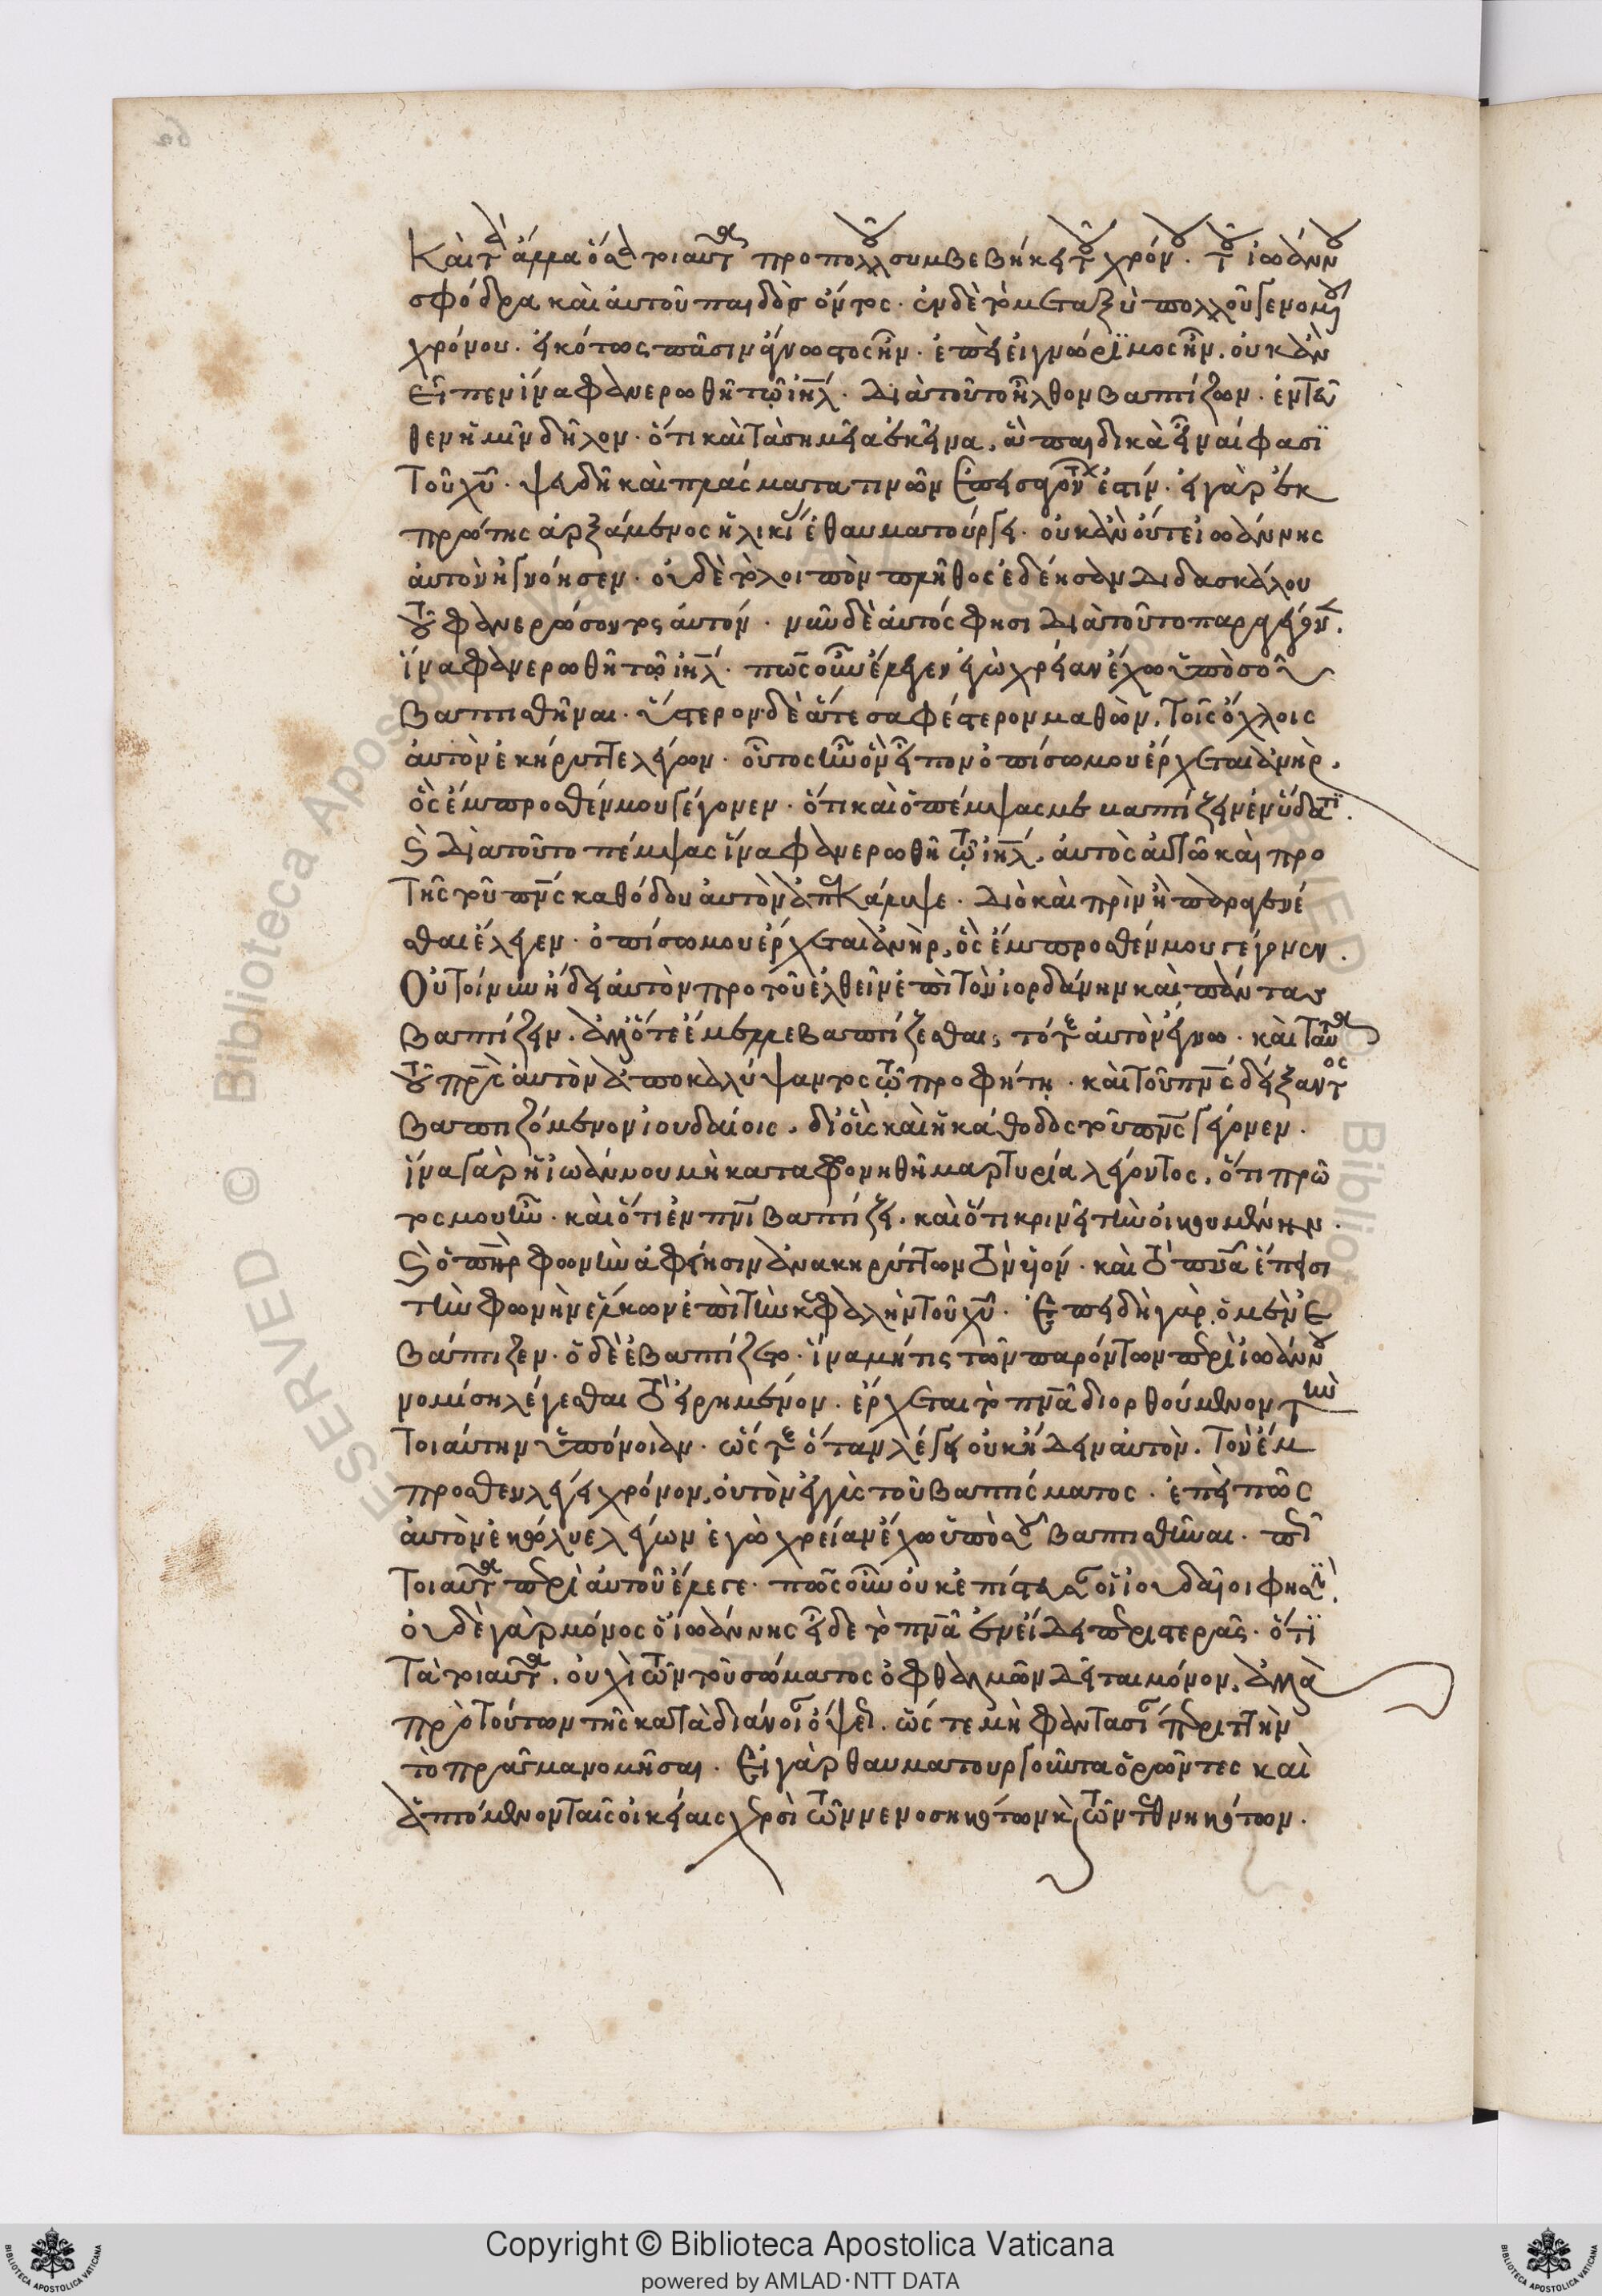 Καὶ τὰ ἅμα ὅσα τοιαῦτα προ πολλοῦ συμβεβήκει τοῦ χρόνου. τοῦ ἰωάννου
σφόδρα καὶ αὐτοῦ παιδὸς ὄντος. ἐν δὲ τῷ μεταξὺ πολλοῦ γενομένου
χρόνου. εἰκότως πᾶσιν ἄγνωστος ἦν. ἐπεὶ εἰ γνώριμος ἦν, οὐκ ἂν
εἶπεν ἵνα φανερωθῆ τῷ ἰηλ. διὰ τοῦτο ἦλθον βαπτίζων. ἐντεῦ
θεν ἡμῖν δῆλον. ὅτι καὶ τὰ σημεῖα ἐκεῖνα, ἃ παιδικὰ εἶναί φασι
τοῦ χυ. ψευδῆ καὶ πλάσματα τινῶν ἐπεισαγόντων ἐστίν. εἰ γὰρ ἐκ
πρώτης ἀρξάμενος ἡλικίας ἐθαυματούργει. οὐκ ἂν οὔτε ἰωάννης
αὐτὸν ἠγνόησεν. οὐδὲ τὸ λοιπὸν πλῆθος ἐδεήσαν διδασκάλου
τοῦ φανερώσοντος αὐτόν. νῦν δὲ αὐτός φησι διὰ τοῦτο παραγεγονέναι.
ἵνα φανερωθῆ τῷ ἰηλ. πῶς οὖν ἔλεγεν ἐγὼ χρείαν ἔχω ὑπὸ σοῦ
βαπτισθῆναι. ὕστερον δὲ ἅτε σαφέστερον μαθὼν, τοῖς ὄχλοις
αὐτὸν ἐκήρυττε λέγων. οὗτος ἦν ὃν εἶπον ὀπίσω μου ἔρχεται ἀνὴρ,
ὃς ἔμπροσθέν μου γέγονεν. ὅτι καὶ ὁ πέμψας με βαπτίζειν ἐν ὕδατι.
διὰ τοῦτο πέμψας ἵνα φανερωθῆ τῷ ἰηλ, αὐτὸς αὐτῷ καὶ προ
τῆς τοῦ πνς καθόδου αὐτὸν ἀπεκάλυψε. διὸ καὶ πρὶν ἢ παραγενέ
σθαι ἔλεγεν. ὀπίσω μου ἔρχεται ἀνὴρ, ὃς ἔμπροσθέν μου γέγονεν.
Οὐ τοίνυν ἤδει αὐτὸν προ τοῦ ἐλθεῖν ἐπὶ τὸν ἰορδάνην καὶ πάντας
βαπτίζειν. ἀλλ' ὅτε ἔμελλε βαπτίζεσθαι, τότε αὐτὸν ἔγνω. καὶ ταῦτα
τοῦ πρς αὐτὸν ἀποκαλύψαντος τῷ προφήτη. καὶ τοῦ πνς δείξαντος
βαπτιζόμενον ἰουδαίοις. δι' οἷς καὶ ἡ κάθοδος τοῦ πνς γέγονεν.
ἵνα γὰρ ἡ ἰωάννου μὴ καταφρονηθῆ μαρτυρία λέγοντος, ὅτι πρῶ
τός μου ἦν. καὶ ὅτι ἐν πνι βαπτίζει. καὶ ὅτι κρινεῖ τὴν οἰκουμένην.
ὁ πηρ φωνὴν ἀφίησιν ἀνακηρύττων τὸν υἱόν. καὶ τὸ πνα ἔπεισι
τὴν φωνὴν ἕλκων ἐπὶ τὴν κεφαλὴν τοῦ χυ. Ἐπειδὴ γὰρ, ὁ μὲν ἐ
βάπτιζεν. ὁ δὲ ἐβαπτίζετο. ἵνα μή τις τῶν παρόντων περὶ ἰωάννου
νομίση λέγεσθαι τὸ εἰρημένον. ἔρχεται τὸ πνα διορθούμενον τὴν
τοιαύτην ὑπόνοιαν. ὥστε ὅταν λέγη οὐκ ἤδειν αὐτὸν, τὸν ἔμ
προσθεν λέγει χρόνον, οὐ τὸν ἐγγὺς τοῦ βαπτίσματος. ἐπεὶ πῶς
αὐτὸν ἐκώλυε λέγων ἐγὼ χρείαν ἔχω ὑπὸ σοῦ βαπτισθῆναι. πῶς
τοιαῦτα περὶ αὐτοῦ ἔλεγε. πῶς οὖν οὐκ ἐπίστευσαν οἱ ἰουδαῖοι φησίν.
οὐδὲ γὰρ μόνος ὁ ἰωάννης εἶδε τὸ πνα ἐν εἴδει περιστερᾶς. ὅτι
τὰ τοιαῦτα, οὐχὶ τῶν τοῦ σώματος ὀφθαλμῶν δεῖται μόνον, ἀλλὰ
πρὸ τούτων τῆς κατὰ διάνοιαν ὄψεως. ὥστε μὴ φαντασίαν περιττὴν
τὸ πρᾶγμα νομῆσαι. Εἰ γὰρ θαυματουργοῦντα ὁρῶντες καὶ
ἁπτόμενον ταῖς οἰκείαις χερσὶ τῶν νενοσηκότων κ τῶν τεθνηκότων.